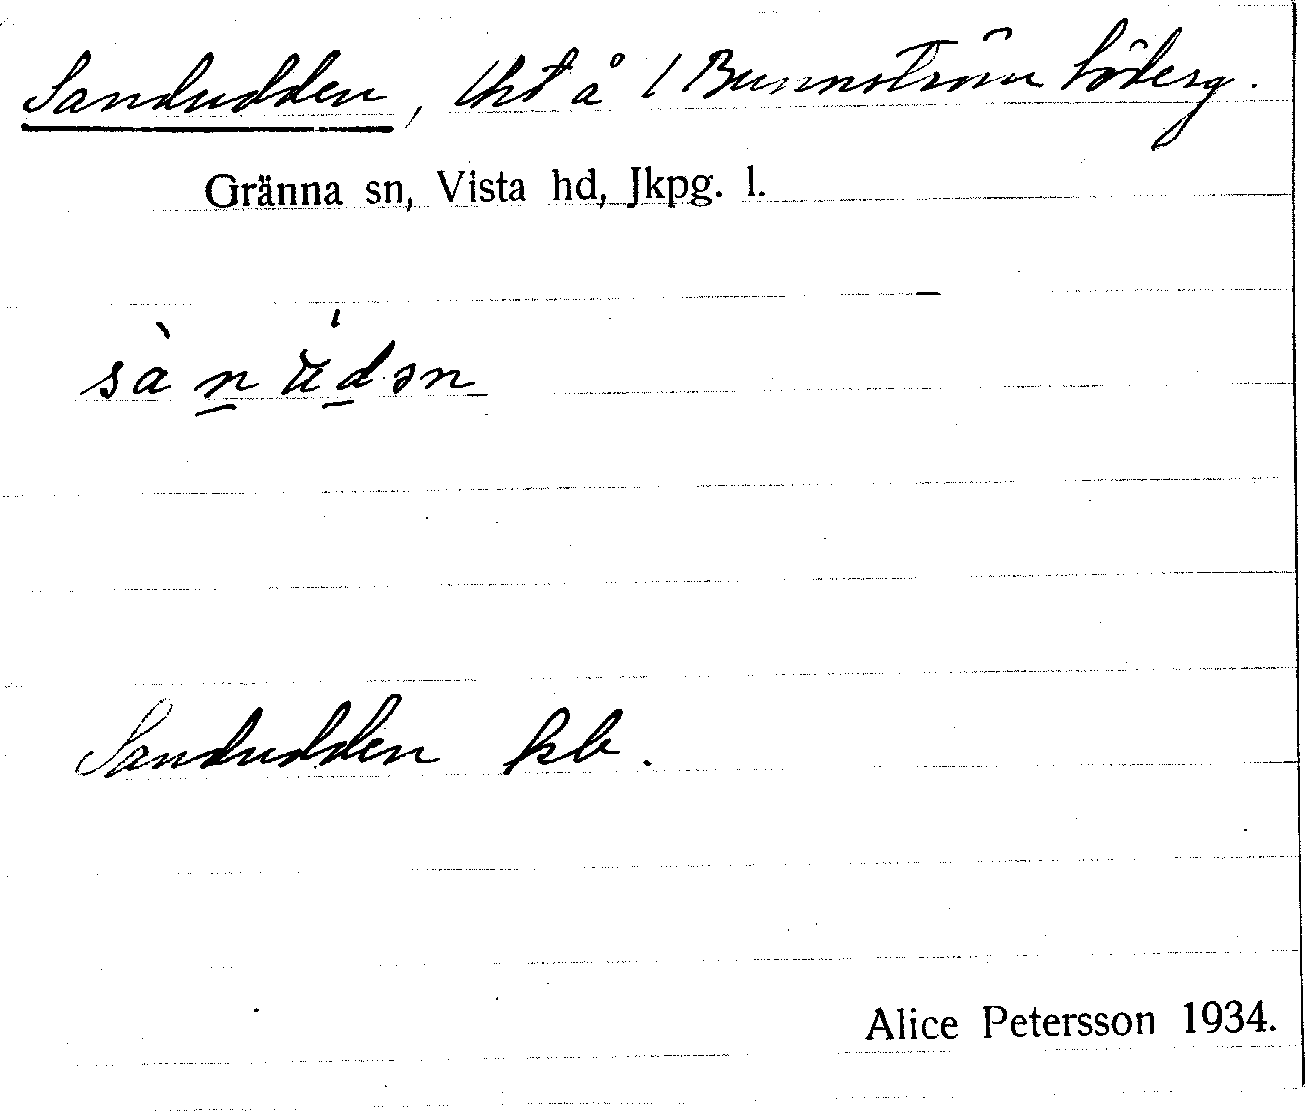 Sandudden, lht å 1 Bunnström Söderg.
Gränna sn, Vista hd, Jkpg. l.
sànúdən
Sandudden kb.
Alice Petersson 1934.